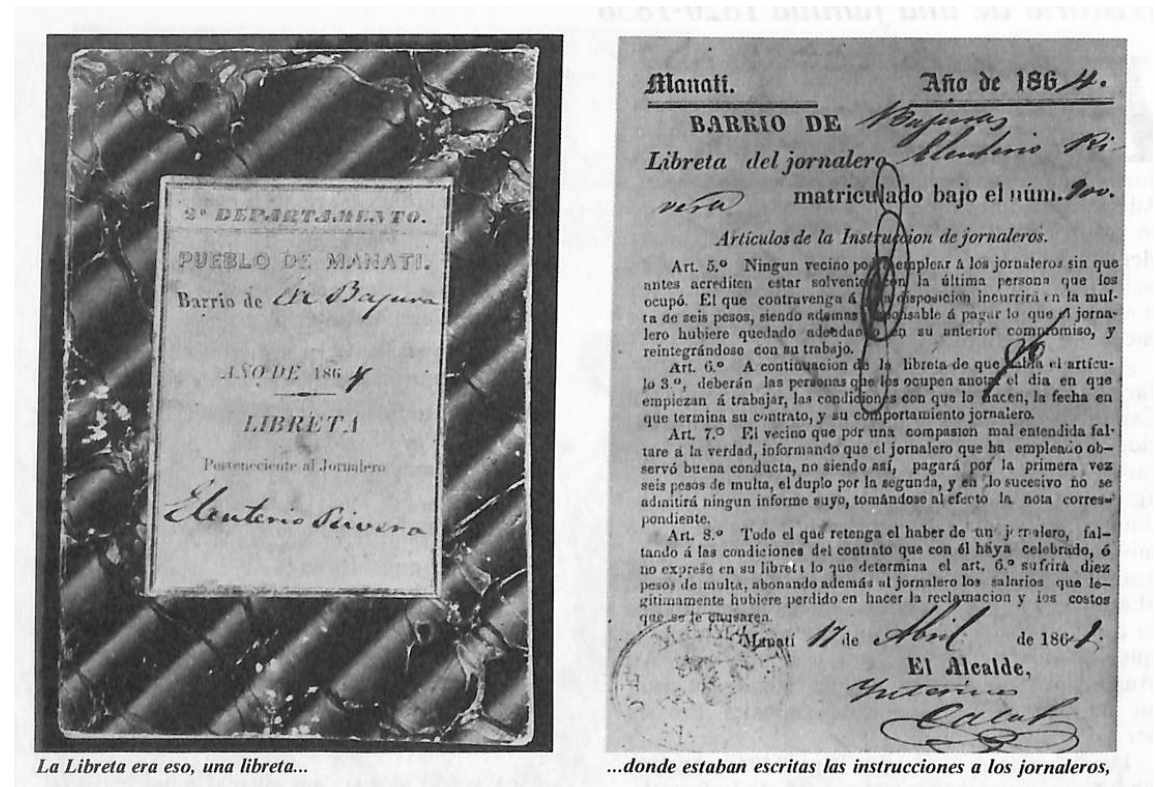 2º DEPARTAMENTO.
PUEBLO DE MANATI.
Barrio de la Bajura
AÑO DE 1864
LIBRETA
Perteneciente al Jornalero
Eleuterio Rivera
La Libreta era eso, una libreta...
Manatí. Año de 1864.
BARRIO DE Bajuras
Libreta del jornalero Eleuterio Ri-
vera matriculado bajo el núm. 900.
Artículos de la Instruccion de jornaleros.
Art. 5.º Ningun vecino podrá emplear á los jornaleros sin que
antes acrediten estar solventes con la última persona que los
ocupó. El que contravenga á esta disposicion incurrirá en la mul-
ta de seis pesos, siendo ademas responsable á pagar lo que el jorna-
lero hubiere quedado adeudando en su anterior compromiso, y
reintegrándose con su trabajo.
Art. 6.º A continuacion de la libreta de que habla el artícu-
lo 3.º, deberán las personas que los ocupen anotar el dia en que
empiezan á trabajar, las condiciones con que lo hacen, la fecha en
que termina su contrato, y su comportamiento jornalero.
Art. 7.º El vecino que por una compasion mal entendida fal-
tare á la verdad, informando que el jornalero que ha empleado ob-
servó buena conducta, no siendo así, pagará por la primera vez
seis pesos de multa, el duplo por la segunda, y en lo sucesivo no se
admitirá ningun informe suyo, tomándose al efecto la nota corres-
pondiente.
Art. 8.º Todo el que retenga el haber de un jornalero, fal-
tando á las condiciones del contrato que con él haya celebrado, ó
no exprese en su libreta lo que determina el art. 6.º sufrirá diez
pesos de multa, abonando además al jornalero los salarios que le-
gítimamente hubiere perdido en hacer la reclamacion y los costos
que se le causaren.
Manatí 17 de Abril de 1864.
El Alcalde,
Interino
...donde estaban escritas las instrucciones a los jornaleros,